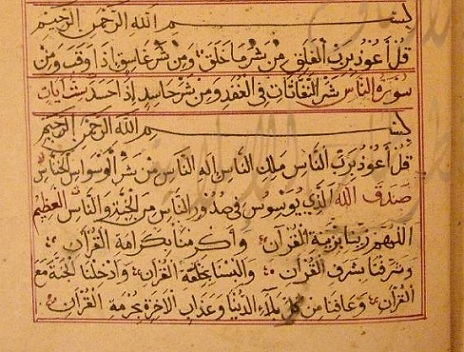 بسم الله الرحمن الرحيم
قُلْ اَعُوذُ بِرَبِّ الْفَلَقِ مِنْ شَرِّ مَا خَلَقَ وَمِنْ شَرِّ غَاسِقٍ اِذَا وَقَبَ وَمِنْ
سورة الناس شَرِّ النَّفَّاثَاتِ فِي الْعُقَدِ وَمِنْ شَرِّ حَاسِدٍ اِذَا حَسَدَ ست ايات
بسم الله الرحمن الرحيم
قُلْ اَعُوذُ بِرَبِّ النَّاسِ مَلِكِ النَّاسِ اِلَهِ النَّاسِ مِنْ شَرِّ الْوَسْوَاسِ الْخَنَّاسِ
صَدَقَ اللّٰه الَّذِي يُوَسْوِسُ فِي صُدُورِ النَّاسِ مِنَ الْجِنَّةِ وَالنَّاسِ الْعَظِيمُ
اللهم زينا بزينة القرآن واكرمنا بكرامة القرآن
وشرفنا بشرف القرآن والبسنا بخلعة القرآن وادخلنا الجنة مع
القرآن وعافنا من كل بلاء الدنيا وعذاب الاخرة بحرمة القرآن